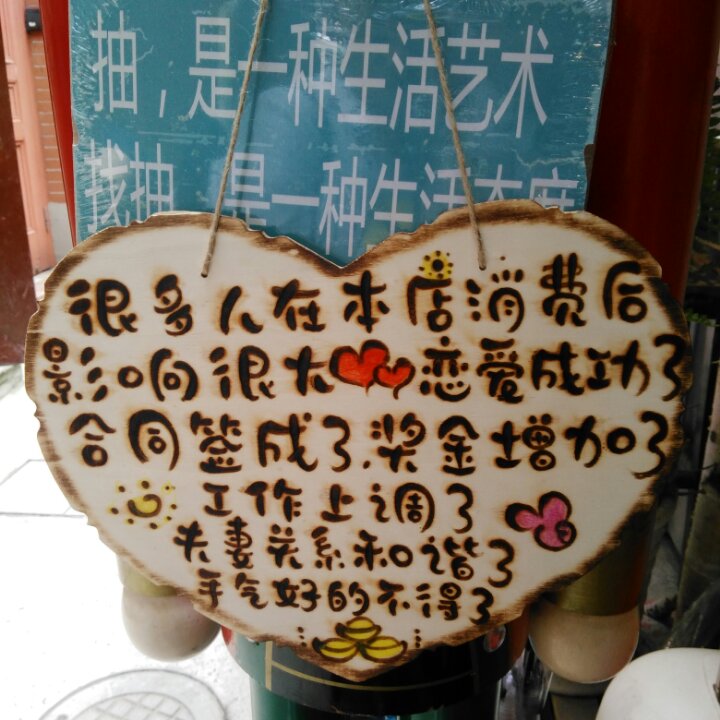 抽，是一种生活艺术
找抽，是一种生活态度
很多人在本店消费后
影响很大恋爱成功了
合同签成了.奖金增加了
工作上调了
夫妻关系和谐了
手气好的不得了